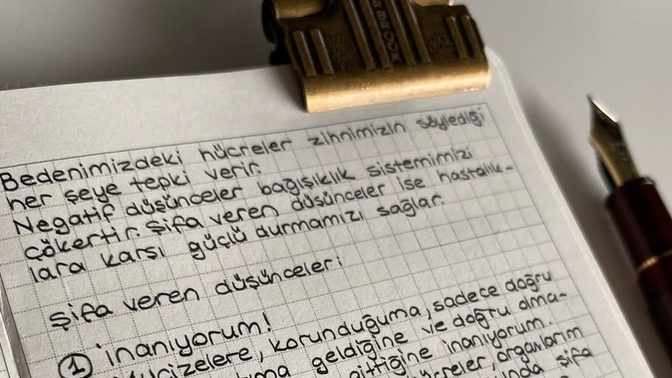 Bedenimizdeki hücreler zihnimizin söylediği
her şeye tepki verir.
Negatif düşünceler bağışıklık sistemimizi
çökertir. Şifa veren düşünceler ise hastalık-
lara karşı güçlü durmamızı sağlar.
Şifa veren düşünceler:
1 inanıyorum!
Mucizelere, korunduğuma, sadece doğru
geldiğine ve doğru olma-
gittiğine inanıyorum.
organlarım
şifa